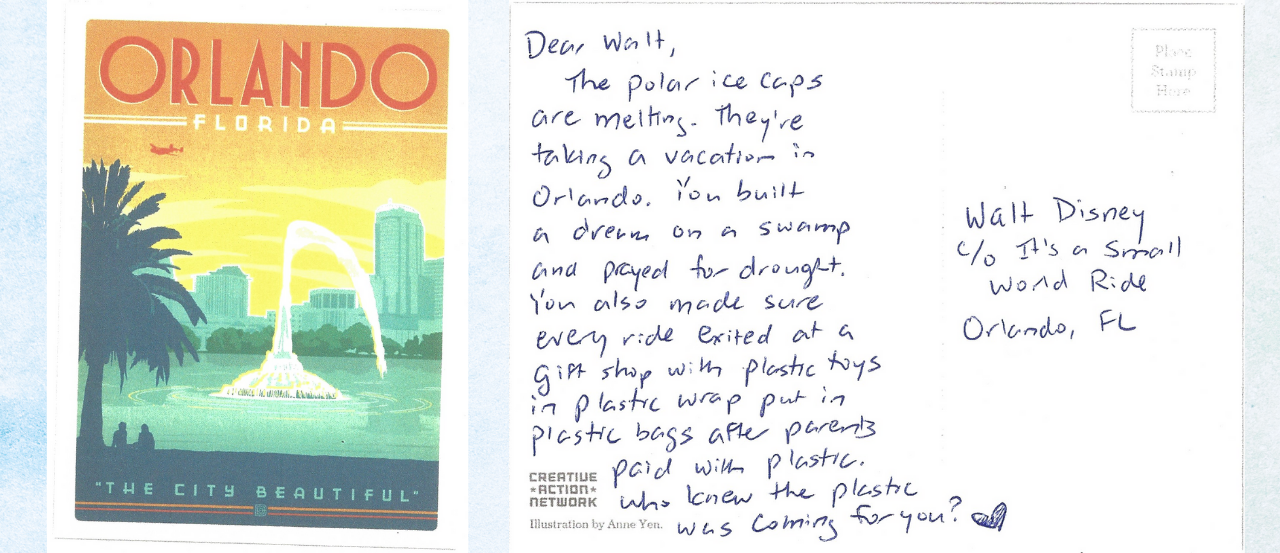 ORLANDO
FLORIDA
"THE CITY BEAUTIFUL"
Dear Walt,
The polar ice caps
are melting. They're
taking a vacation in
Orlando. You built
a dream on a swamp
and prayed for drought.
You also made sure
every ride exited at a
gift shop with plastic toys
in plastic wrap put in
plastic bags after parents
paid with plastic.
who knew the plastic
was coming for you?
CREATIVE
ACTION
NETWORK
Illustration by Anne Yen.
Place
Stamp
Here
Walt Disney
c/o It's a Small
World Ride
Orlando, FL